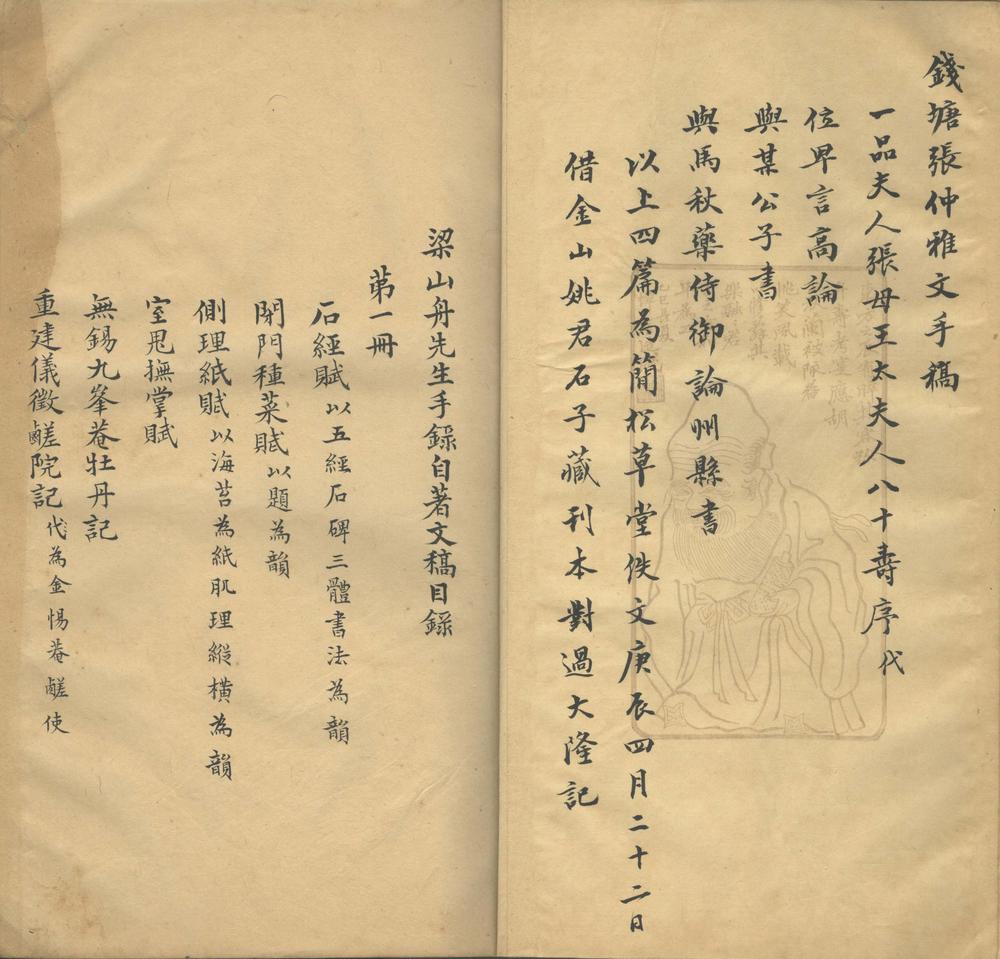 錢塘張仲雅文手稿
一品夫人張母王太夫人八十壽序代
位卑言高論
與某公子書
與馬秋藥侍御論州縣書
以上四篇為簡松草堂佚文庚辰四月二十二日
借金山姚君石子藏刊本對過大隆記
梁山舟先生手錄自著文稿目錄
苐一冊
石經賦以五經石碑三體書法為韻
閉門種菜賦以題為韻
側理紙賦以海苔為紙肌理縱橫為韻
宓凫撫掌賦
無錫九峯菴牡丹記
重建儀徵鹺院記代為金惕菴鹺使